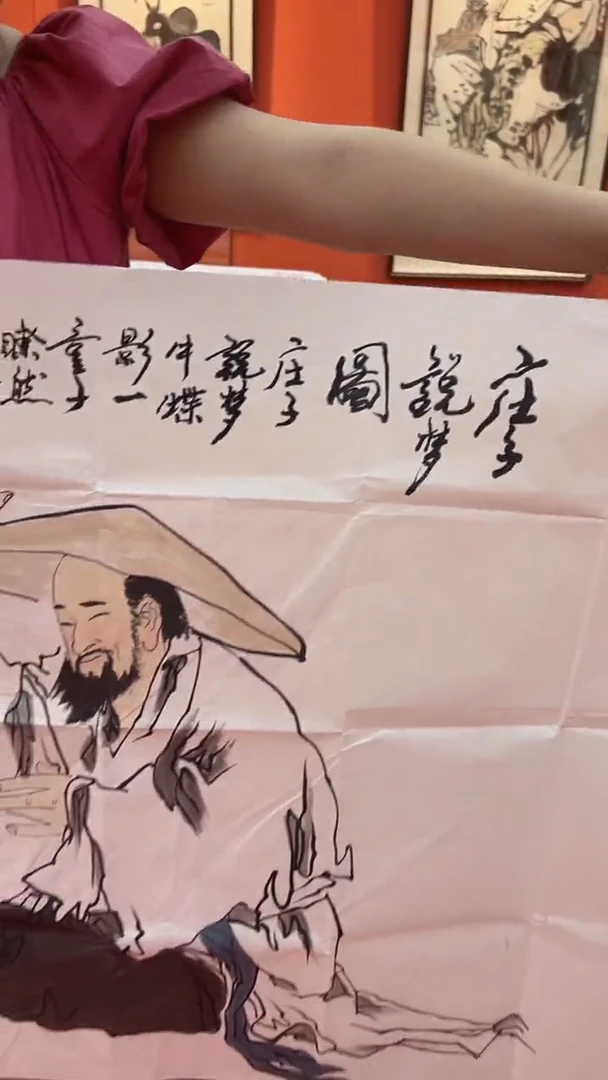 庄子
說梦
圖
庄子
說梦
牛蝶
影一
童子
瞭然